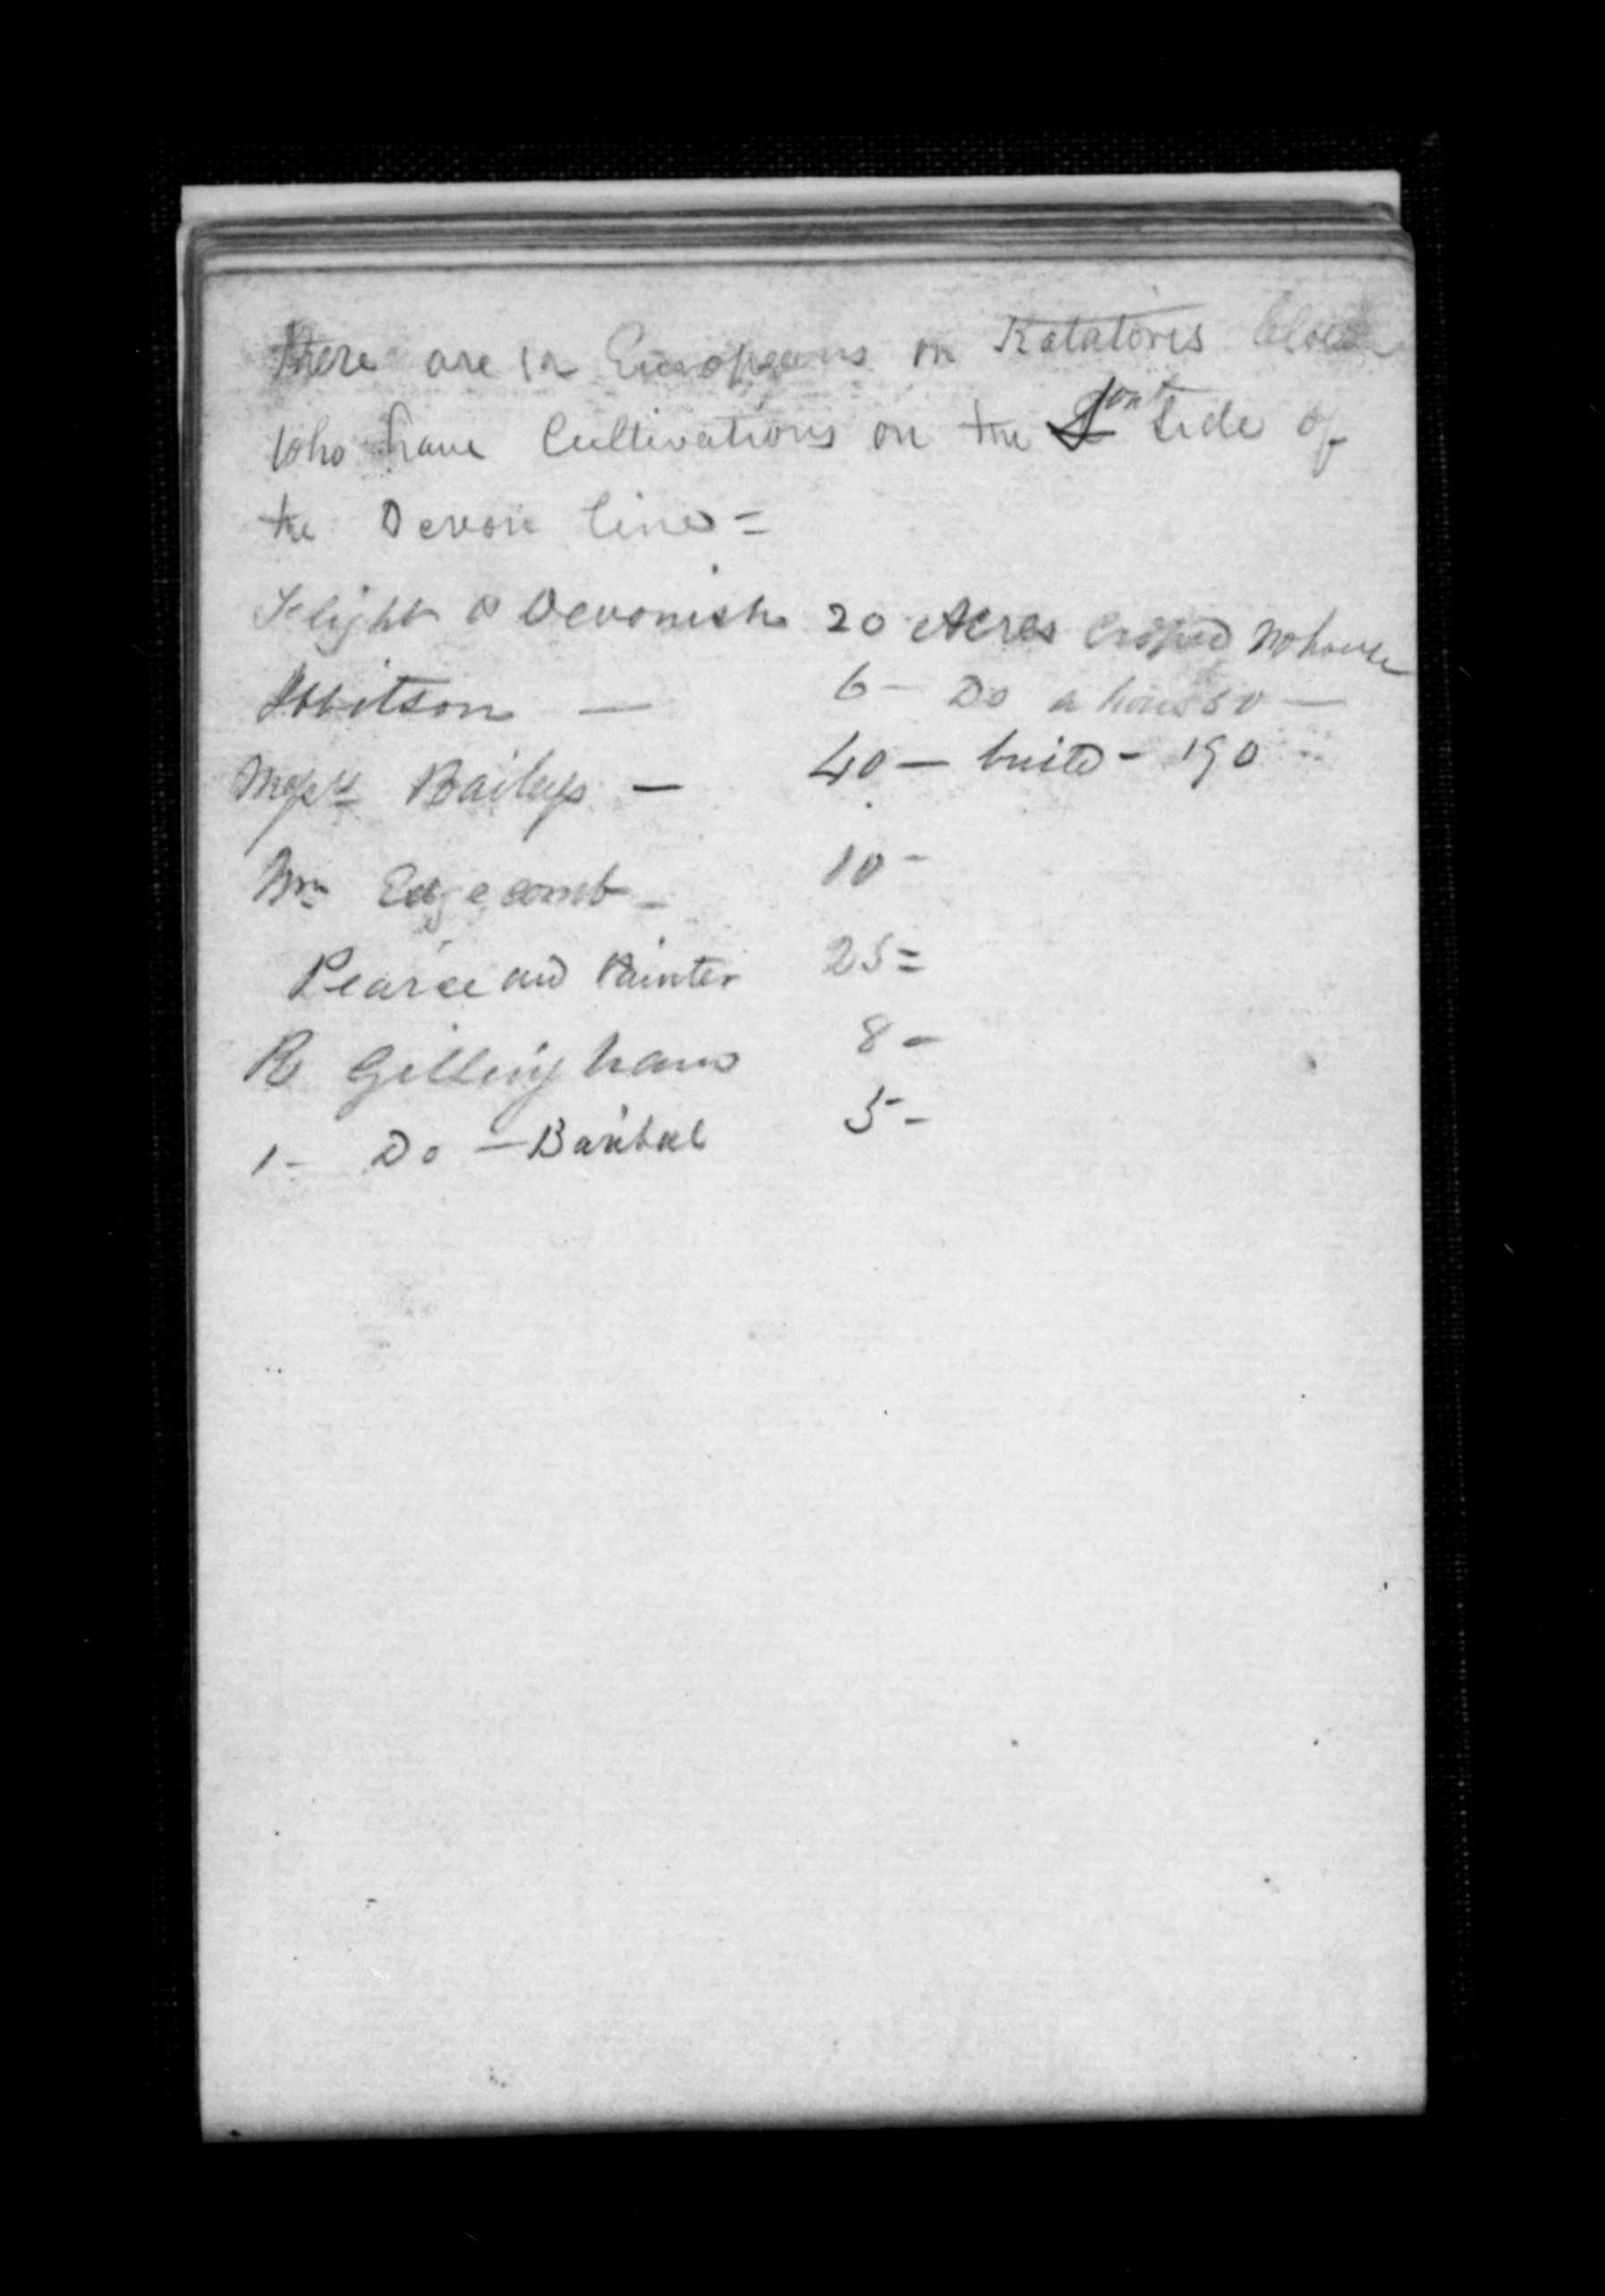 there are 12 Europeans on Katatoris block
who have Cultivations on the South side of
the Devon line =
Flight & Devonish 20 Acres croped No house
Ibbitson — 6 - Do a house 50 —
Messrs Baileys — 40 — build - 190
Wm Edgecomb - 10 -
Pearce and Painter 25 =
R Gillingham 8 -
1 - Do - 5 -